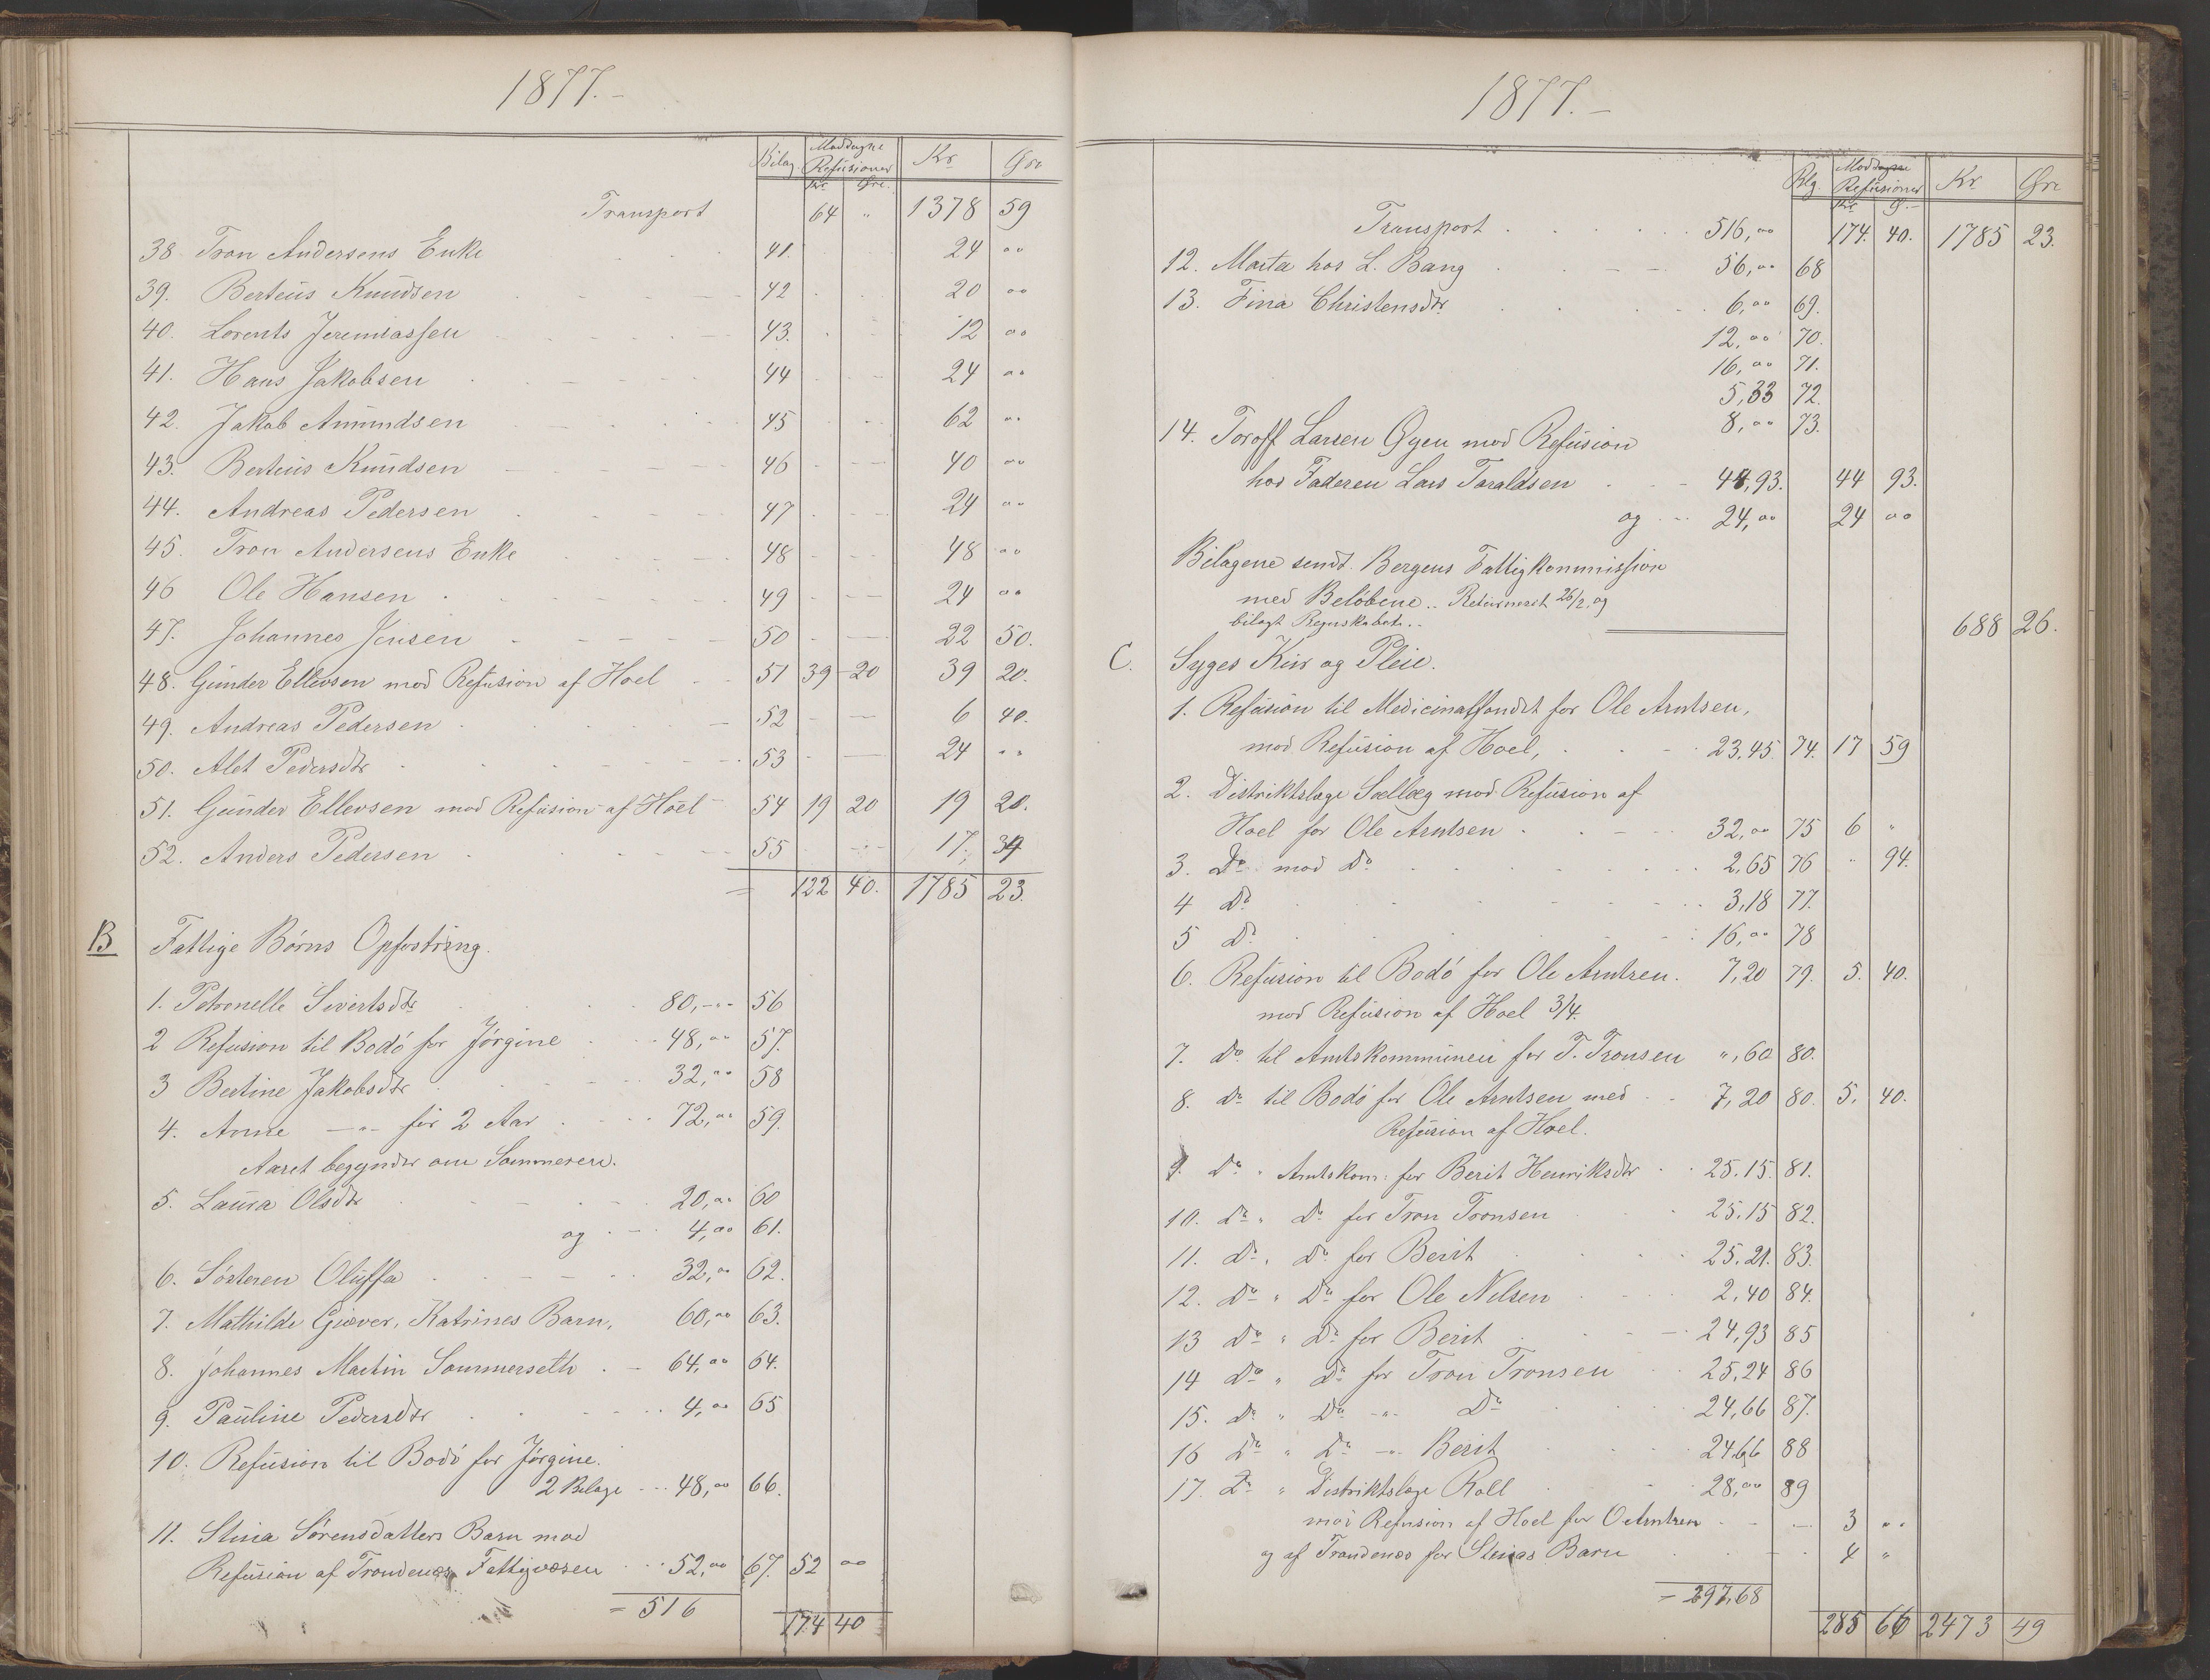 1877.-
Bilag. Modtagne Refusioner Kr Øre
Kr. Øre.
Transport 64 " 1378 59
38 Tron Andersens Enke 41. 24 00
39. Berteus Knudsen 42 20 00
40. Lorents Jeremiassen 43. 12 00
41. Hans Jakobsen 44 24 00
42. Jakob Amundsen 45 62 00
43. Berteus Knudsen 46 40 00
44. Andreas Pedersen 47 24 00
45. Tron Andersens Enke 48 48 00
46 Ole Hansen 49 24 00
47. Johannes Jensen 50 22 50.
48. Gunder Ellevsen mod Refusion af Hoel 51 39 20 39 20.
49. Andreas Pedersen 52 6 40.
50. Alet Pedersdtr 53 24 00
51. Gunder Ellevsen mod Refusion af Hoel 54 19 20 19 20.
52. Anders Pedersen 55 17, 34
= 122 40. 1785 23.
B Fattige Børns Opfostring.
1. Petronelle Sivertsdtr 80,00 56
2 Refusion til Bodö for Jørgine 48,00 57.
3 Bertine Jakobsdtr 32,00 58
4. Anne —"— for 2 Aar 72,00 59.
Aaret begynder om Sommeren.
5. Laura Olsdtr 20,00 60
og 4,00 61.
6. Søsteren Oluffa 32,00 62.
7. Mathilde Giæver, Katrines Barn, 60,00 63.
8. Johannes Martin Sommerseth 64,00 64.
9. Pauline Pedersdtr 4,00 65
10. Refusion til Bodö for Jørgine.
2 Bilage 48,00 66.
11. Stina Sørensdatters Barn mod
Refusion af Trondenæs Fattigvæsen 52,00 67. 52 00
= 516
174 40
1877.-
Blg. Modtagne Refusioner Kr Øre
Kr. Ø.
Transport 516,00 174. 40. 1785 23.
12. Marta hos L. Bang 56,00 68
13. Fina Christensdtr. 6,00 69.
12,00 70.
16,00 71.
5,33 72.
8,00 73.
14. Toroff Larsen Øyen mod Refusion
hos Faderen Lars Taraldsen 44,93. 44 93.
og 24,00 24 00
Bilagene sendt Bergens Fattigkommission
med Beløbene.. Returneret 26/2. og
bilagt Regnskabet..
688 26.
C. Syges Kur og Pleie.
1. Refusion til Medicinalfondet for Ole Arntsen,
mod Refusion af Hoel, 23,45. 74. 17 59
2. Distriktslæge Sælleg mod Refusion af
Hoel for Ole Arntsen 32,00 75 6 "
3. Do mod Do 2,65 76 " 94.
4 Do 3,18 77.
5 Do 16,00 78
6. Refusion til Bodö for Ole Arntzen. 7,20 79. 5. 40.
mod Refusion af Hoel 3/4.
7. Do til Amtskommunen for T. Tronsen ",60 80.
8. Do til Bodö for Ole Arntsen med 7,20 80. 5. 40.
Refusion af Hoel.
9. Do " Amtskom: for Berit Henriksdtr 25.15. 81.
10. Do " Do for Tron Tronsen 25.15 82.
11. Do " Do for Berit 25.21. 83.
12. Do " Do for Ole Nilsen 2,40 84.
13 Do " Do for Berit 24,93 85
14 Do " Do for Tron Tronsen 25,24 86
15. Do " Do —"— Do 24,66 87.
16 Do " Do —"— Berit 24.66 88
17. Do " Distriktslæge Roll 28,00 89
mod Refusion af Hoel for O Arntzen 3 00
og af Trondenæs for Stinas Barn 4 "
= 297,68
285 66 2473 49